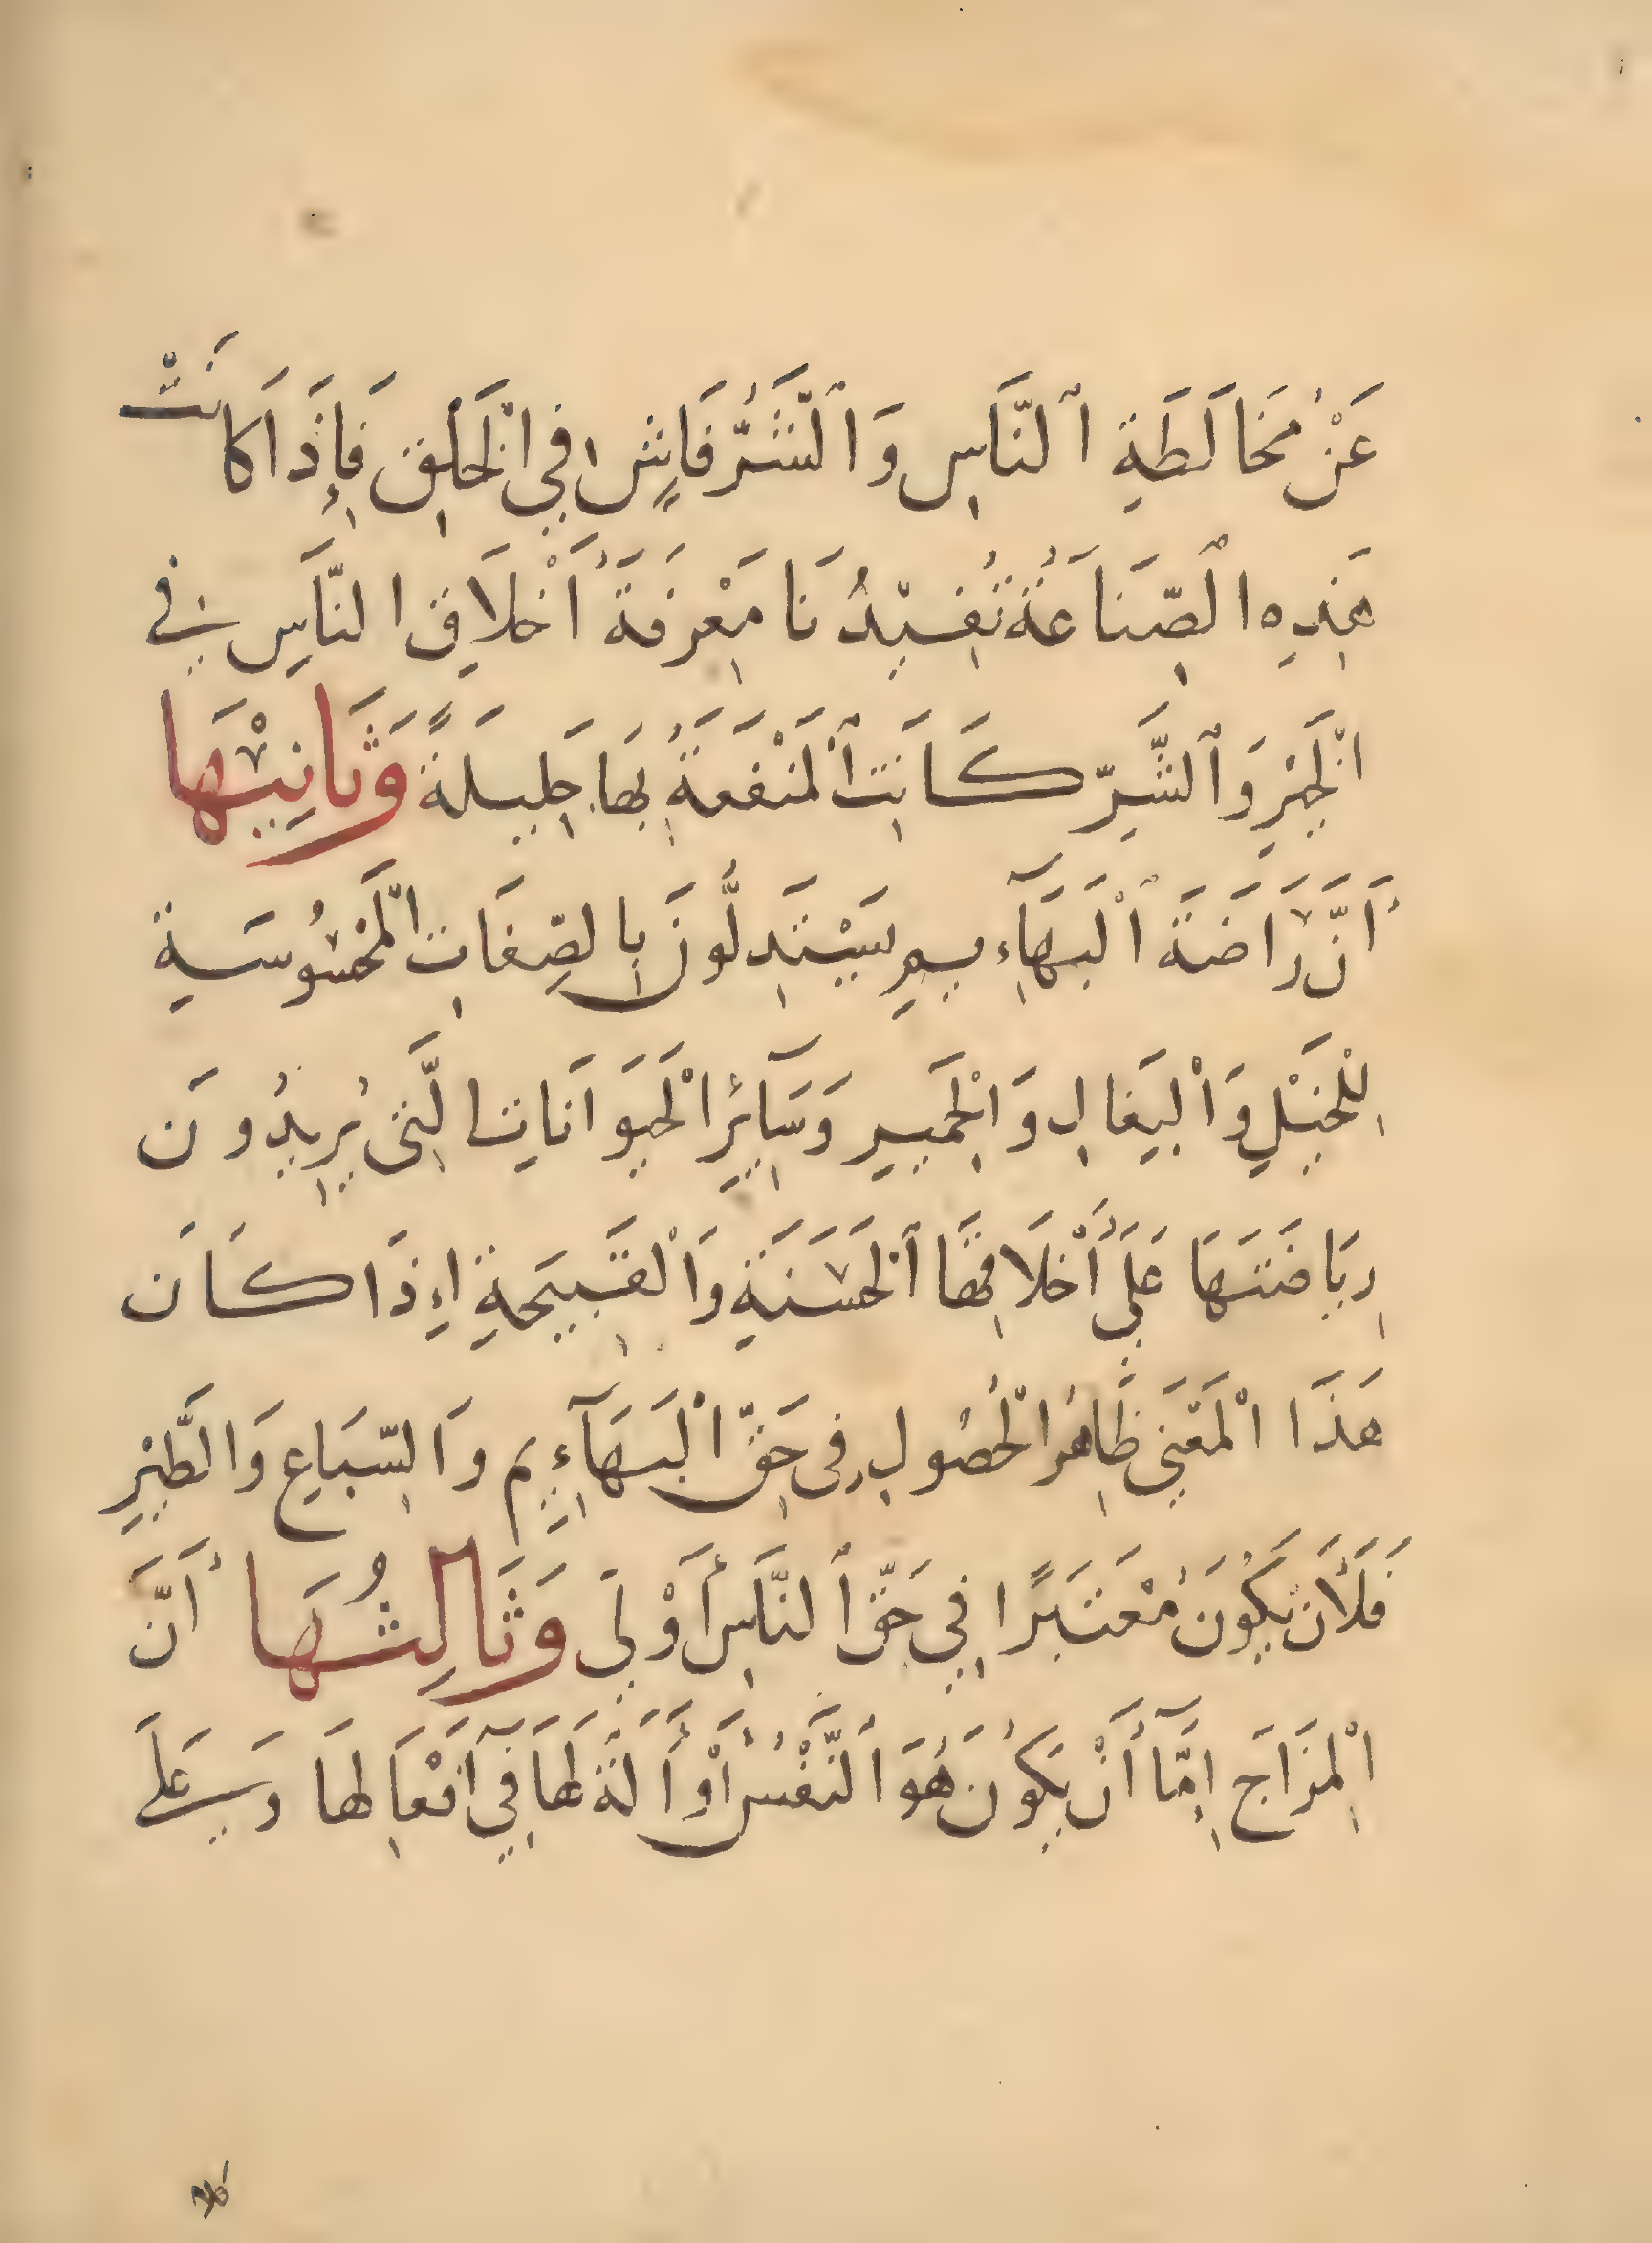 عَنْ مُخَالَطَةِ ٱلنَّاسِ وَٱلشَّرُّ فَاشٍ فِي الْخَلْقِ فَإِذَا كَانَتْ
هَذِهِ الصِّنَاعَةُ تُفِيدُنَا مَعْرِفَةَ أَخْلَاقِ النَّاسِ فِي
الْخَيْرِ وَٱلشَّرِّ كَانَتِ ٱلْمَنْفَعَةُ بِهَا جَلِيلَةً وَثَانِيْهَا
أَنَّ رَاضَةَ ٱلْبَهَآءِيمِ يَسْتَدِلُّونَ بِالصِّفَاتِ الْمَحْسُوسَةِ
لِلْخَيْلِ وَالْبِغَالِ وَالْحَمِيرِ وَسَآئِرِ الْحَيَوَانَاتِ الَّتِي يُرِيدُونَ
رِيَاضَتَهَا عَلَى أَخْلَاقِهَا ٱلْحَسَنَةِ وَالْقَبِيحَةِ اءِذَا كَانَ
هَذَا الْمَعْنَى ظَاهِرُ الْحُصُولِ فِي حَقِّ الْبَهَآءِيِمِ وَالسِّبَاعِ وَالطَّيْرِ
فَلَأَن يَكُونَ مُعْتَبَرًا فِي حَقِّ ٱلنَّاسِ أَوْلَى وَثَالِثُهَا أَنَّ
الْمِزَاجَ إِمَّآ أَنْ يَكُونَ هُوَ النَّفْسُ أَوْ أَلَةً لَهَا فِيٓ أَفْعَالِهَا وَسَيَ عَلَى
كلا